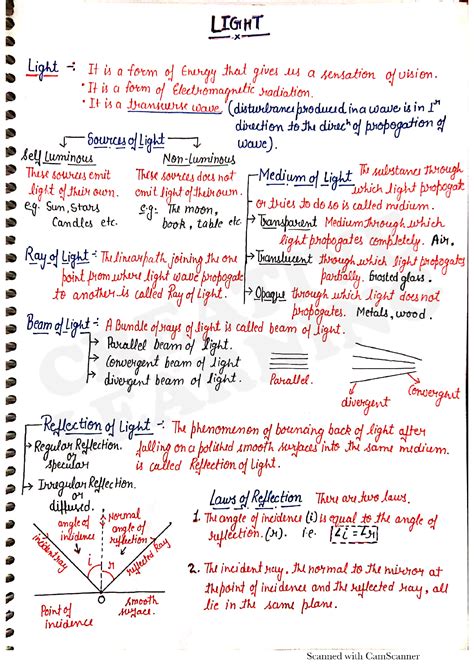 LIGHT
Light :- It is a form of Energy that gives us a sensation of vision.
• It is a form of Electromagnetic radiation.
• It is a transverse wave (disturbance produced in a wave is in 1r
direction to the direcn of propogation of
wave).
Sources of Light
Self Luminous
These sources emit
light of their own.
e.g. Sun, Stars
Candles etc.
Non-Luminous
These sources does not
emit light of their own.
e.g:- The moon,
book, table etc
Medium of Light The substance through
which light propogat
or tries to do so is called medium.
Transparent Medium through which
light propogates completely. Air,
Translucent through which light propogates
partially. frosted glass.
Opaque through which light does not
propogates. Metals, wood.
Ray of Light :- The linear path joining the one
point from where light wave propogate
to another is called Ray of Light.
Beam of Light :- A Bundle of rays of light is called beam of light.
Parallel beam of light
Convergent beam of light
divergent beam of light.
Parallel.
divergent
Convergent
Reflection of Light :- The phenomenon of bouncing back of light after
falling on a polished smooth surfaces into the same medium.
is called Reflection of Light.
Regular Reflection
or
specular
Irregular Reflection.
or
diffused.
Laws of Reflection There are two laws.
1. The angle of incidence (i) is equal to the angle of
reflection. (r). i.e. ∠i = ∠r
2. The incident ray, the normal to the mirror at
the point of incidence and the reflected ray, all
lie in the same plane.
angle of
incidence
normal
angle of
reflection
incident ray
i
r
reflected Ray
O
Point of
incidence
smooth
surface.
Scanned with CamScanner